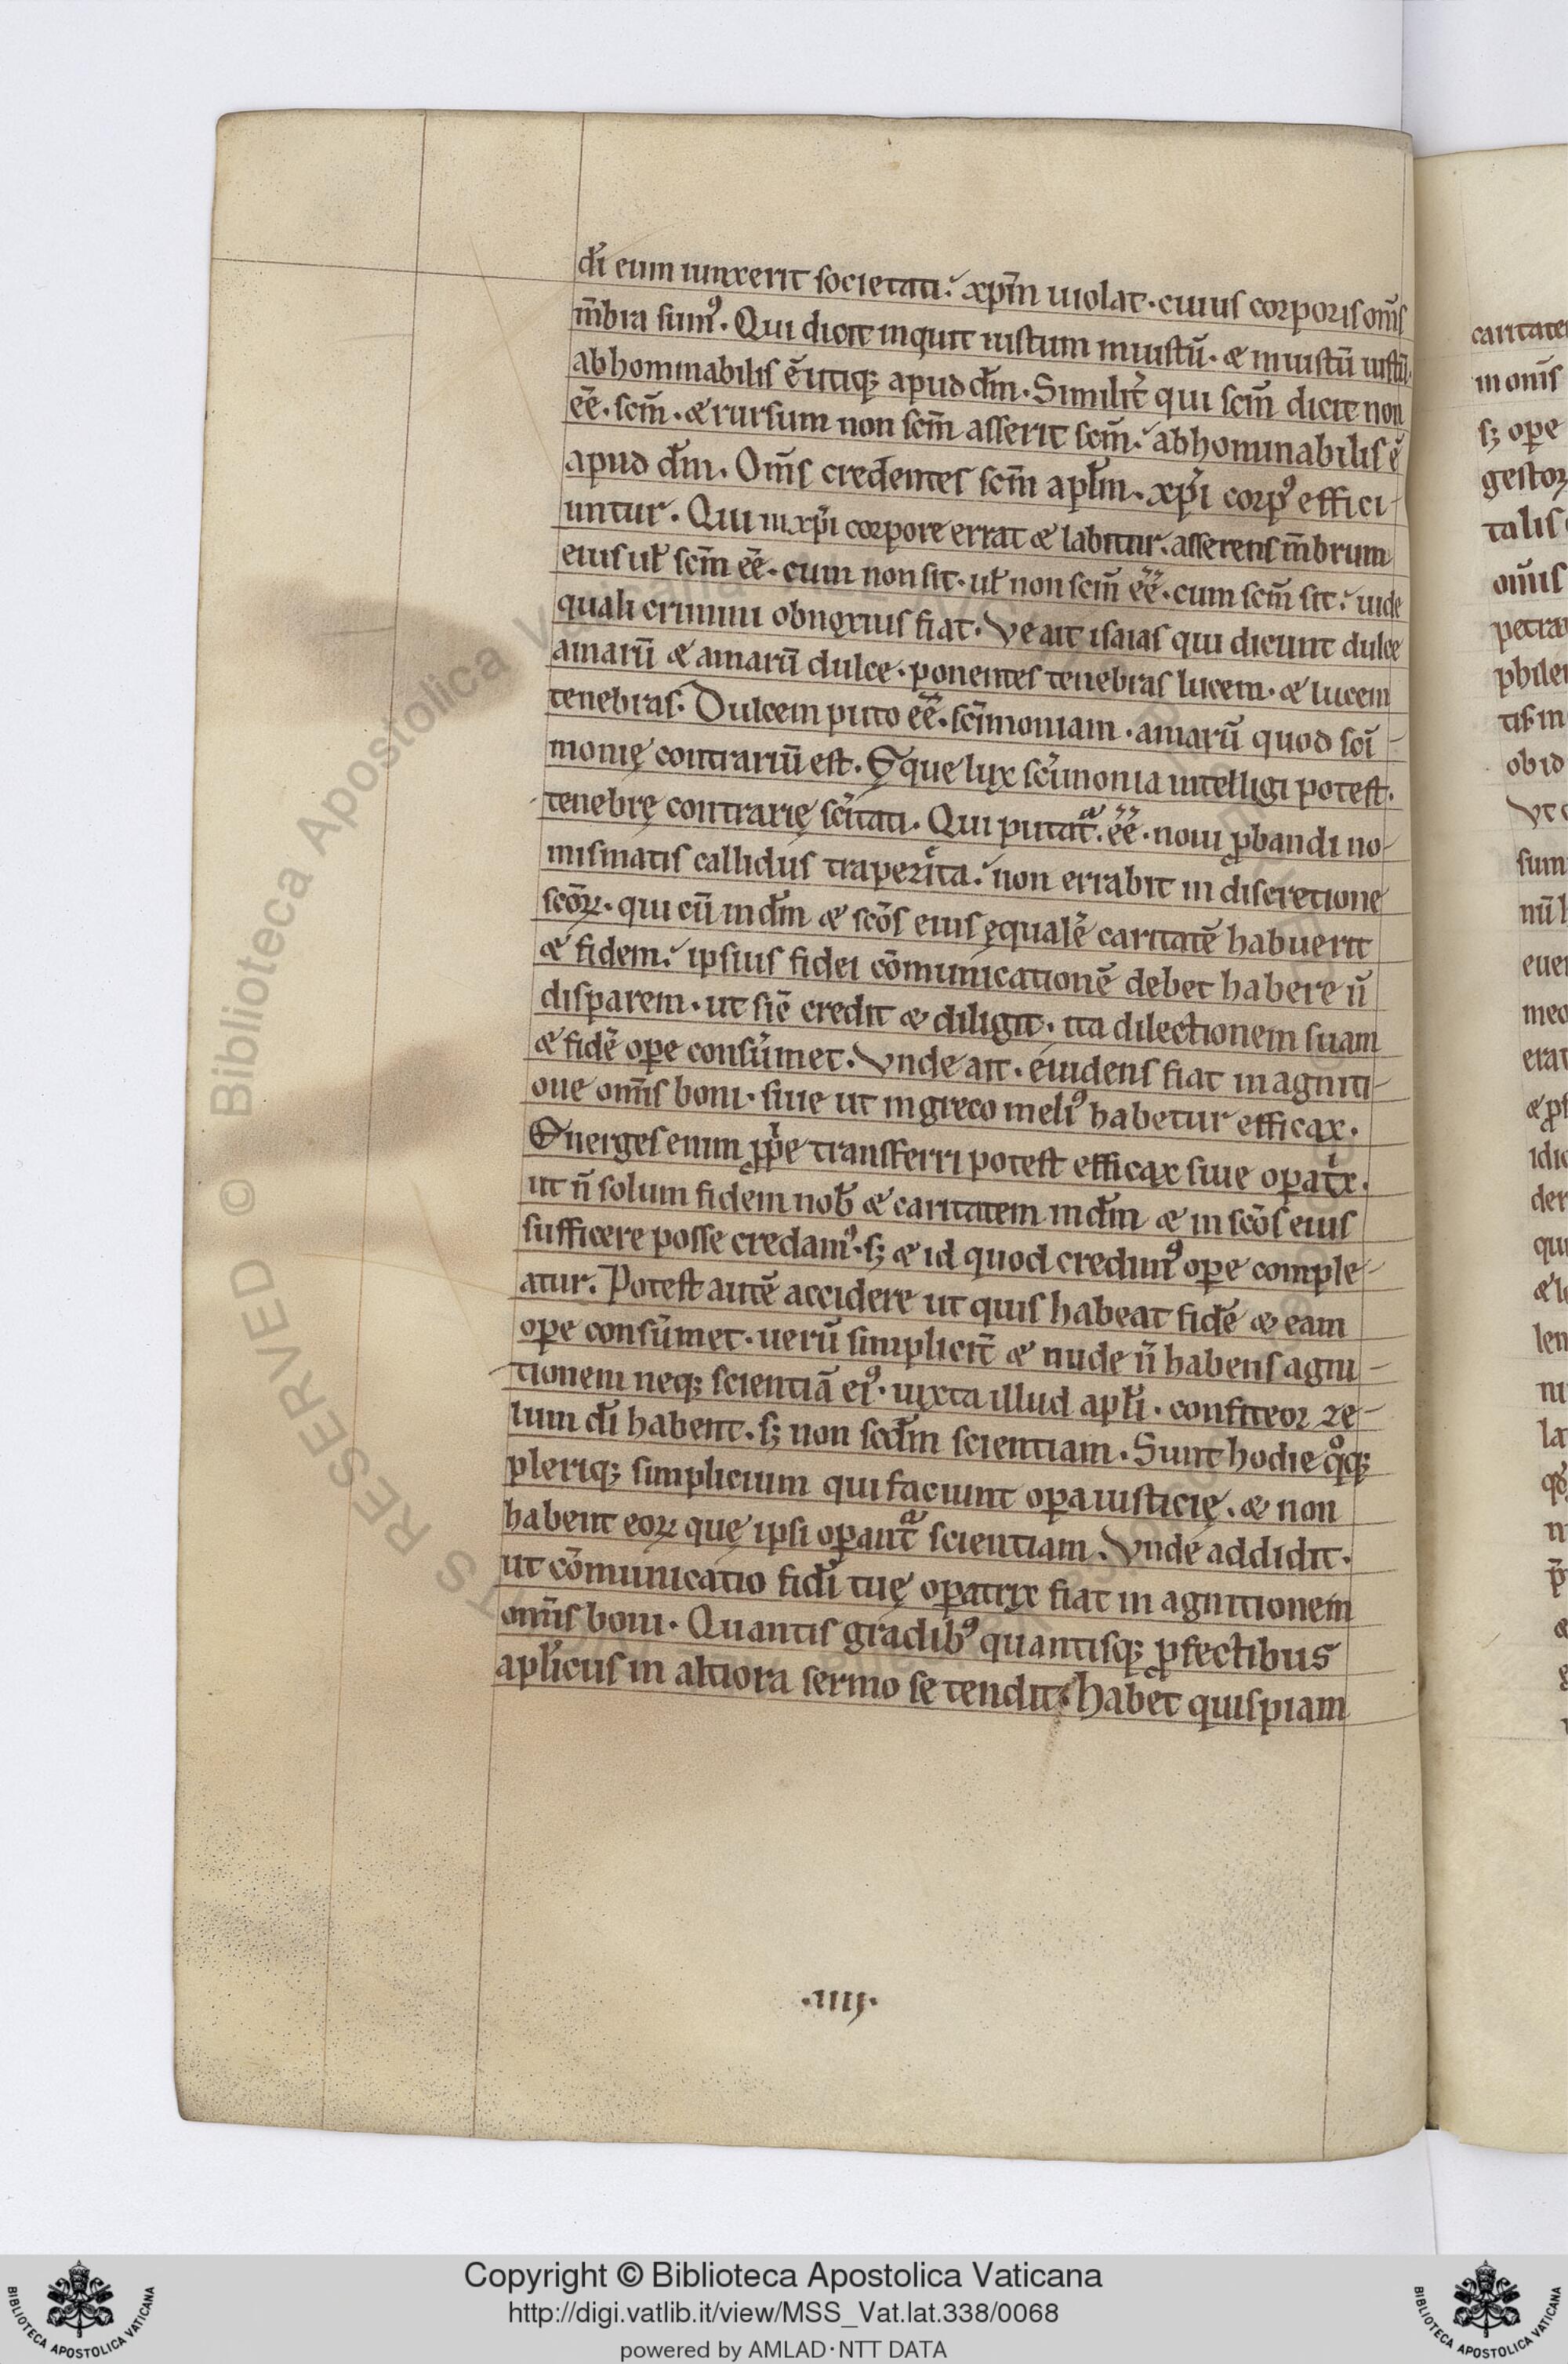 dī eum iunxerit societati. xp̄m uiolat. cuius corporis om̄s
m̄bra sumꝰ. Qui dicit inquit iustum iniustū. & iniustū iustū.
abhominabilis ē utiq; apud dm̄. Similit̄ qui scm̄ dicit non
eē. scm̄. & rursum non scm̄ asserit scm̄. abhominabilis ē
apud dm̄. Om̄s credentes scm̄ apl̄m. xp̄i corpꝰ effici-
untur. Qui in xp̄i corpore errat & labitur. asserens m̄brum
eius ul̄ scm̄ eē. cum non sit. ul̄ non scm̄ eē. cum scm̄ sit. uide
quali crimini obnoxius fiat. Ve ait isaias qui dicunt dulce
amarū & amarū dulce. ponentes tenebras lucem. & lucem
tenebras. Dulcem puto eē. scīmoniam. amarū quod scī-
monię contrariū est. Eque lux scīmonia intelligi potest.
tenebrę contrarię scītati. Qui putat̄. eē. noui ꝓbandi no-
mismatis callidus trapezita. non errabit in discretione
scōꝝ. qui cū in dm̄ & scōs eius ęqualē caritatē habuerit
& fidem. ipsius fidei cōmunicationē debet habere n̄
disparem. ut sic̄ credit & diligit. ita dilectionem suam
& fidē oꝑe consūmet. Vnde ait. euidens fiat in agniti-
one om̄is boni. siue ut in greco meliꝰ habetur efficax.
Energes enim ꝓpe transferri potest efficax siue oꝑatx.
ut n̄ solum fidem nob̄ & caritatem in dm̄ & in scōs eius
sufficere posse credamꝰ. s; & id quod credimꝰ oꝑe comple-
atur. Potest autē accidere ut quis habeat fidē & eam
oꝑe consūmet. uerū simplicit̄ & nude n̄ habens agni-
tionem neq; scientiā eiꝰ. iuxta illud apl̄i. confiteor ze-
lum dī habent. s; non scdm̄ scientiam. Sunt hodie qͦq;
pleriq; simplicium qui faciunt oꝑa iusticię. & non
habent eoꝝ quę ipsi oꝑant̄ scientiam. Vnde addidit.
ut cōmunicatio fidī tuę oꝑatrix fiat in agnitionem
om̄is boni. Quantis gradibꝰ quantisq; ꝓfectibus
apl̄icus in altiora sermo se tendit. Habet̄ quispiam
.IIII.
caritate
in om̄s
s; oꝑe
gestoꝝ
talis
om̄is
petrar
phile
tis in
ob id
Vt
sum
nū l
euer
meo
erat
& ꝓf
der
qui
len
la
© Biblioteca Apostolica Vaticana
RESERVED
Copyright © Biblioteca Apostolica Vaticana
http://digi.vatlib.it/view/MSS_Vat.lat.338/0068
powered by AMLAD·NTT DATA
BIBLIOTECA APOSTOLICA VATICANA
BIBLIOTECA APOSTOLICA VATICANA